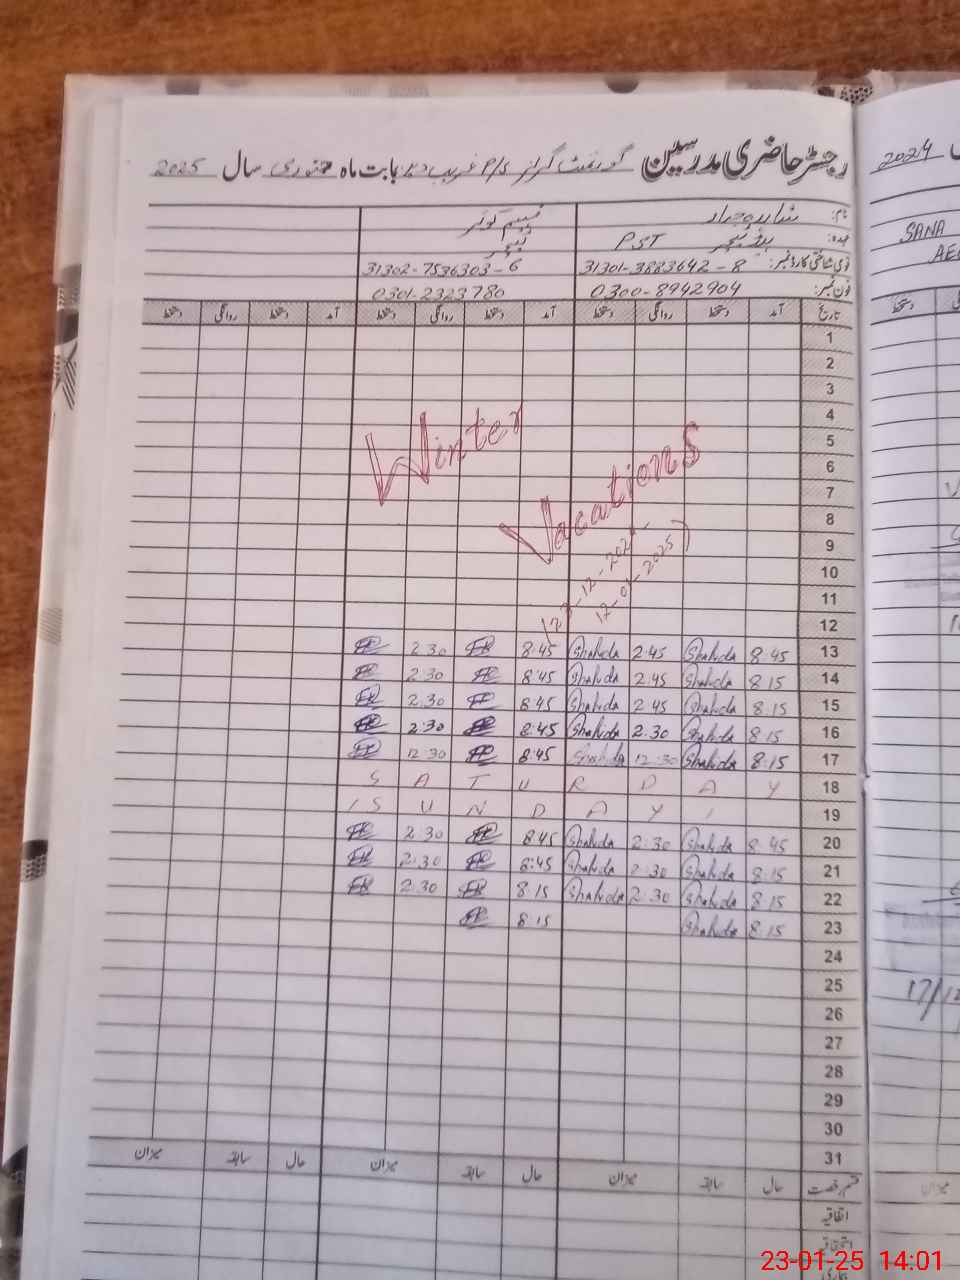 رجسٹر حاضری مدرسین گورنمنٹ گرلز P/S غریب بابت ماہ جنوری سال 2025
نام:
عہدہ: ہیڈ ٹیچر PST ٹیچر
قومی شناختی کارڈ نمبر: 31301-3883642-8 31302-7536303-6
فون نمبر: 0300-8942904 0301-2323780
تاریخ آمد دستخط روانگی دستخط آمد دستخط روانگی دستخط آمد دستخط روانگی دستخط
1
2
3
4
5
6
7
8
9
10
11
12
Winter
Vacations
12-01-2025)
13 8:45 Shahida 2:45 Shahida 8:45 2:30
14 8:15 Shahida 2:45 Shahida 8:45 2:30
15 8:15 Shahida 2:45 Shahida 8:45 2:30
16 8:15 Shahida 2:30 Shahida 8:45 2:30
17 8:15 Shahida 12:30 Shahida 8:45 12:30
18 S A T U R D A Y
19 S U N D A Y
20 8:45 Shahida 2:30 Shahida 8:45 2:30
21 8:15 Shahida 2:30 Shahida 8:45 2:30
22 8:15 Shahida 2:30 Shahida 8:15 2:30
23 8:15 Shahida 8:15
24
25
26
27
28
29
30
31
قسم رخصت حال سابقہ میزان حال سابقہ میزان حال سابقہ میزان
اتفاقیہ
استحقاقیہ
بیماری
2024
SANA
دستخط
17/12
میزان
23-01-25 14:01